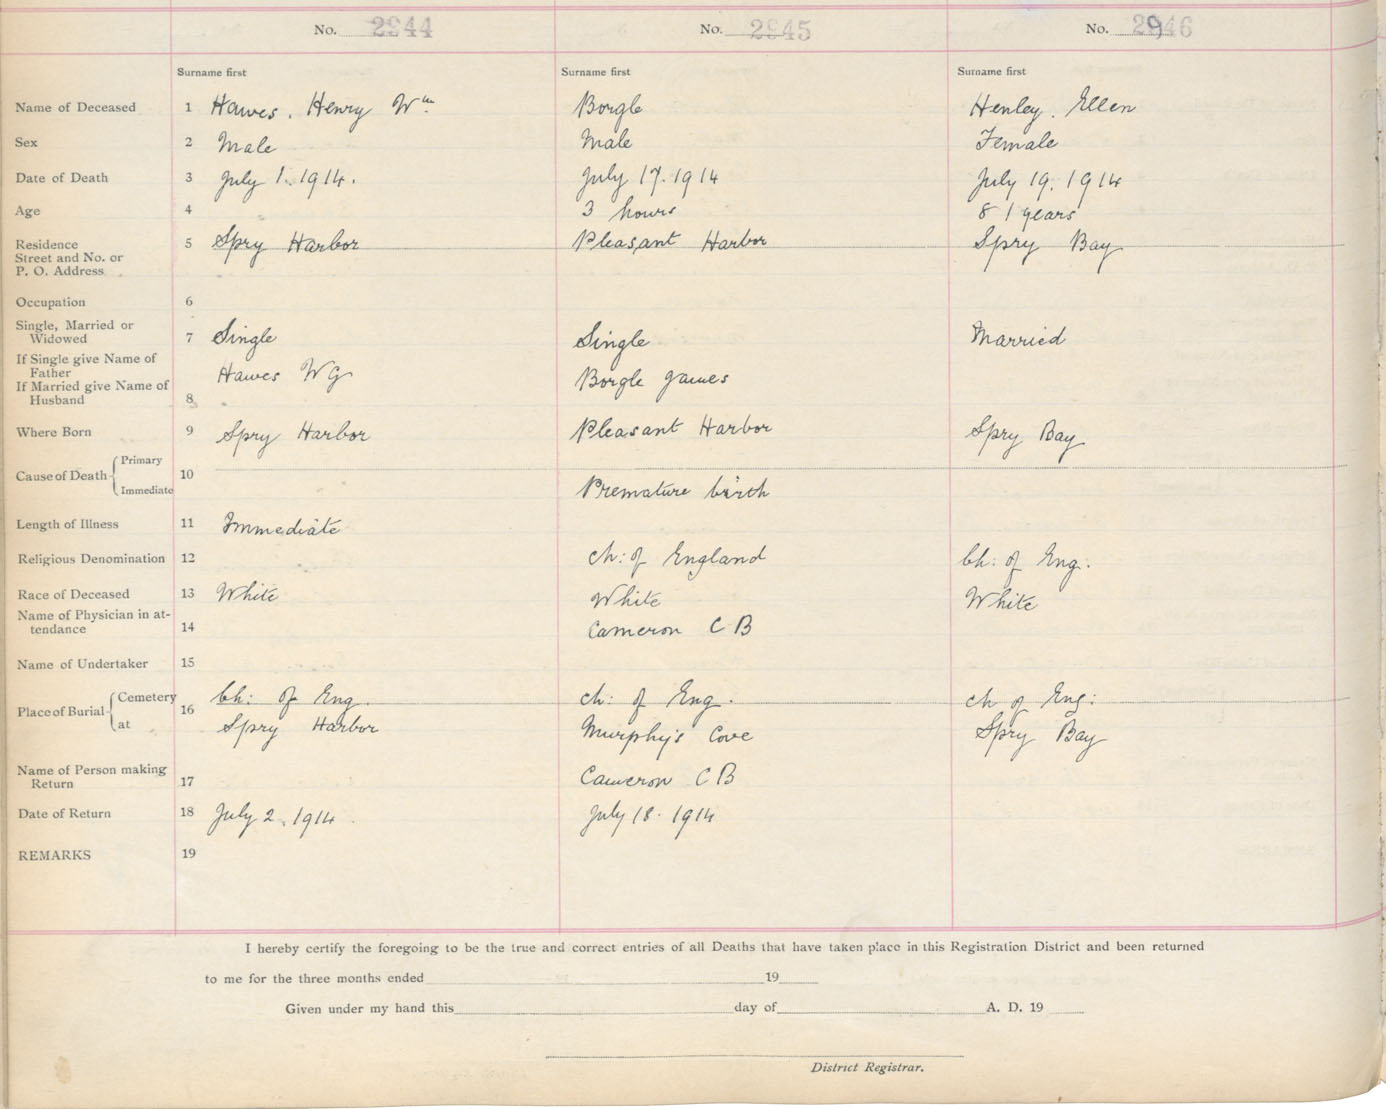 No. 2944 No. 2945 No. 2946
Surname first Surname first Surname first
Name of Deceased 1 Hawes, Henry Wm. Borgle Henley, Ellen
Sex 2 Male Male Female
Date of Death 3 July 1. 1914. July 17. 1914 July 19. 1914
Age 4 3 hours 81 years
Residence 5 Spry Harbor Pleasant Harbor Spry Bay
Street and No. or
P. O. Address
Occupation 6
Single, Married or
Widowed 7 Single Single Married
If Single give Name of
Father Hawes W G Borgle James
If Married give Name of
Husband 8
Where Born 9 Spry Harbor Pleasant Harbor Spry Bay
Primary
Cause of Death 10
Immediate Premature birth
Length of Illness 11 Immediate
Religious Denomination 12 Ch: of England Ch: of Eng.
Race of Deceased 13 White White White
Name of Physician in at-
tendance 14 Cameron C B
Name of Undertaker 15
Cemetery Ch: of Eng. Ch: of Eng. Ch of Eng:
Place of Burial 16
at Spry Harbor Murphy's Cove Spry Bay
Name of Person making
Return 17 Cameron C B
Date of Return 18 July 2. 1914 July 18. 1914
REMARKS 19
I hereby certify the foregoing to be the true and correct entries of all Deaths that have taken place in this Registration District and been returned
to me for the three months ended 19
Given under my hand this day of A. D. 19
District Registrar.